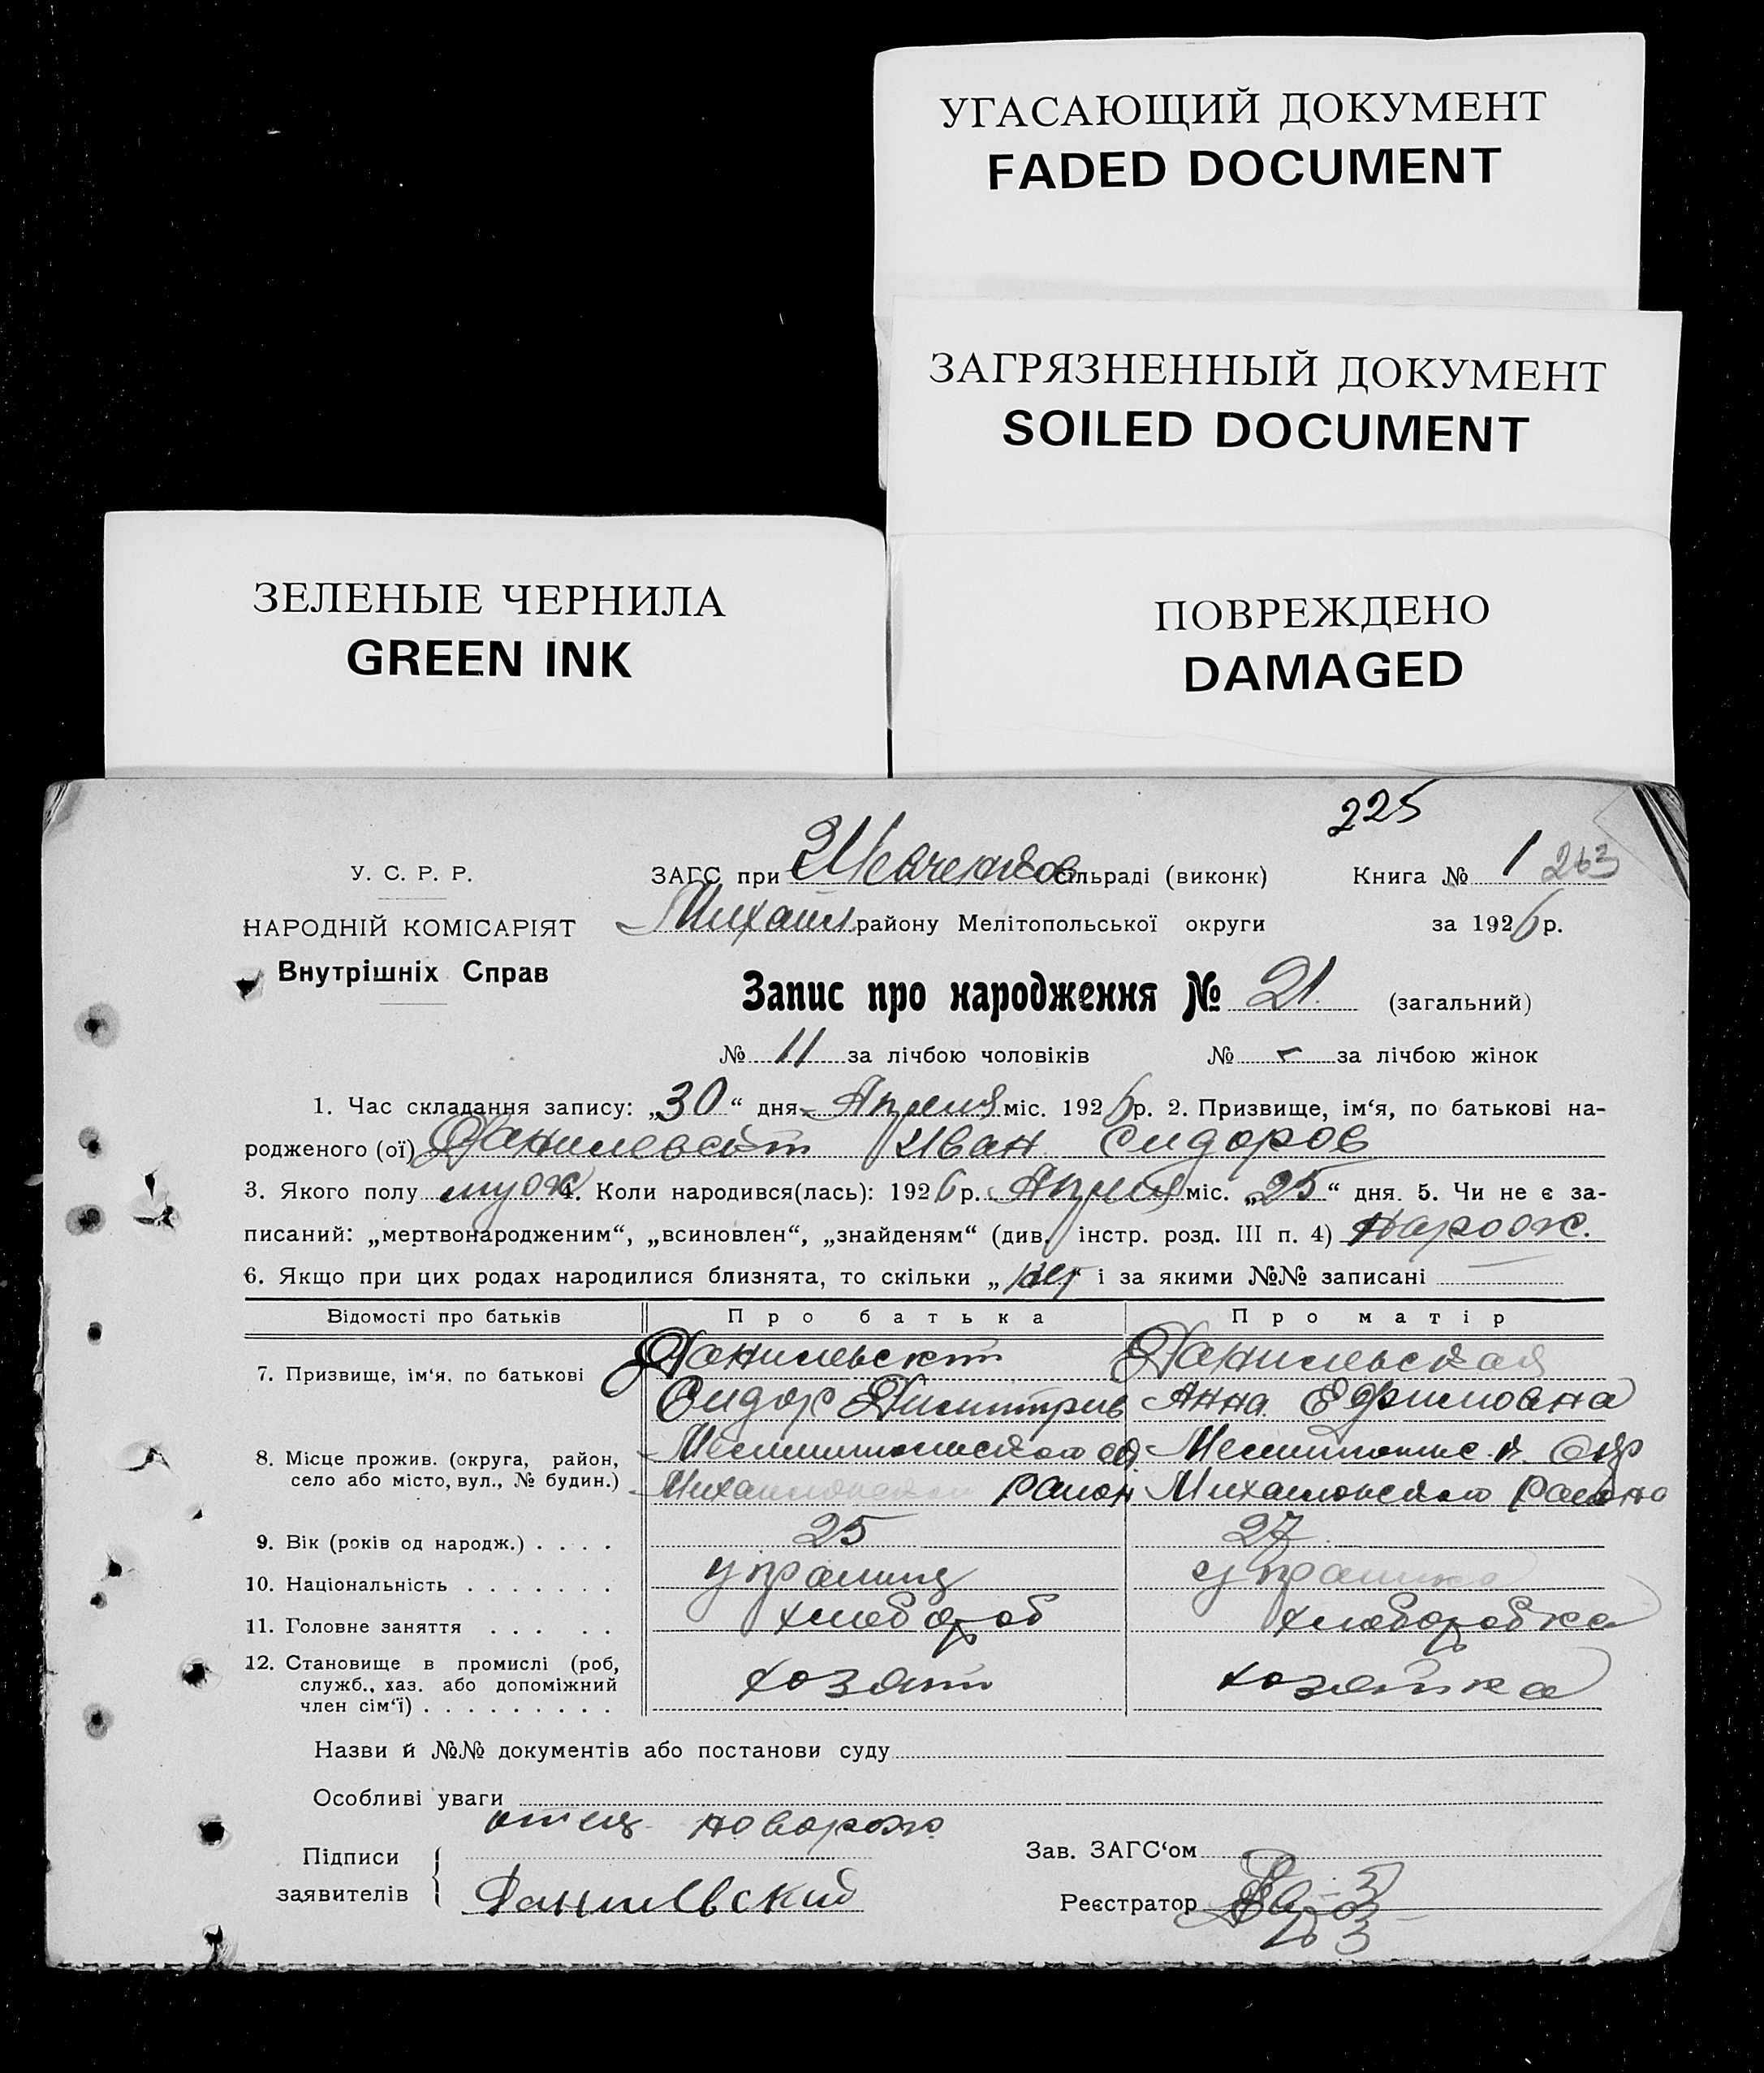 УГАСАЮЩИЙ ДОКУМЕНТ
FADED DOCUMENT
ЗАГРЯЗНЕННЫЙ ДОКУМЕНТ
SOILED DOCUMENT
ЗЕЛЕНЫЕ ЧЕРНИЛА
GREEN INK
ПОВРЕЖДЕНО
DAMAGED
225
У. С. Р. Р.
НАРОДНІЙ КОМІСАРІЯТ
Внутрішніх Справ
ЗАГС при сільраді (виконк)
Книга № 1 263
Михайл. району Мелітопольської округи
за 1926 р.
Запис про народження № 21. (загальний)
№ 11 за лічбою чоловіків № - за лічбою жінок
1. Час складання запису: „30“ дня Апреля міс. 1926 р. 2. Призвище, ім‘я, по батькові на-
родженого (ої) Данилевский Иван Сидоров
3. Якого полу муж 4. Коли народився(лась): 1926 р. Апреля міс. „25“ дня. 5. Чи не є за-
писаний: „мертвонародженим“, „всиновлен“, „знайденям“ (див. інстр. розд. III п. 4) Нарожд.
6. Якщо при цих родах народилися близнята, то скільки „нет“ і за якими №№ записані
Відомості про батьків Про батька Про матір
7. Призвище, ім‘я, по батькові Данилевский Данилевская
Сидор Димитрив Анна Ефимовна
8. Місце прожив. (округа, район,
село або місто, вул., № будин.)
Мелитопольского Мелитопольск. Окр
Михайловского район Михайловского района
9. Вік (років од народж.) . . . . 25 27
10. Національність . . . . . . . украинц украинка
11. Головне заняття . . . . . хлебороб хлеборобка
12. Становище в промислі (роб,
служб., хаз. або допоміжний
член сім‘ї) . . . . . . . . . хозяин хозяйка
Назви й №№ документів або постанови суду
Особливі уваги
отец новорожд
Підписи
заявителів Данилевский
Зав. ЗАГС‘ом
Реєстратор